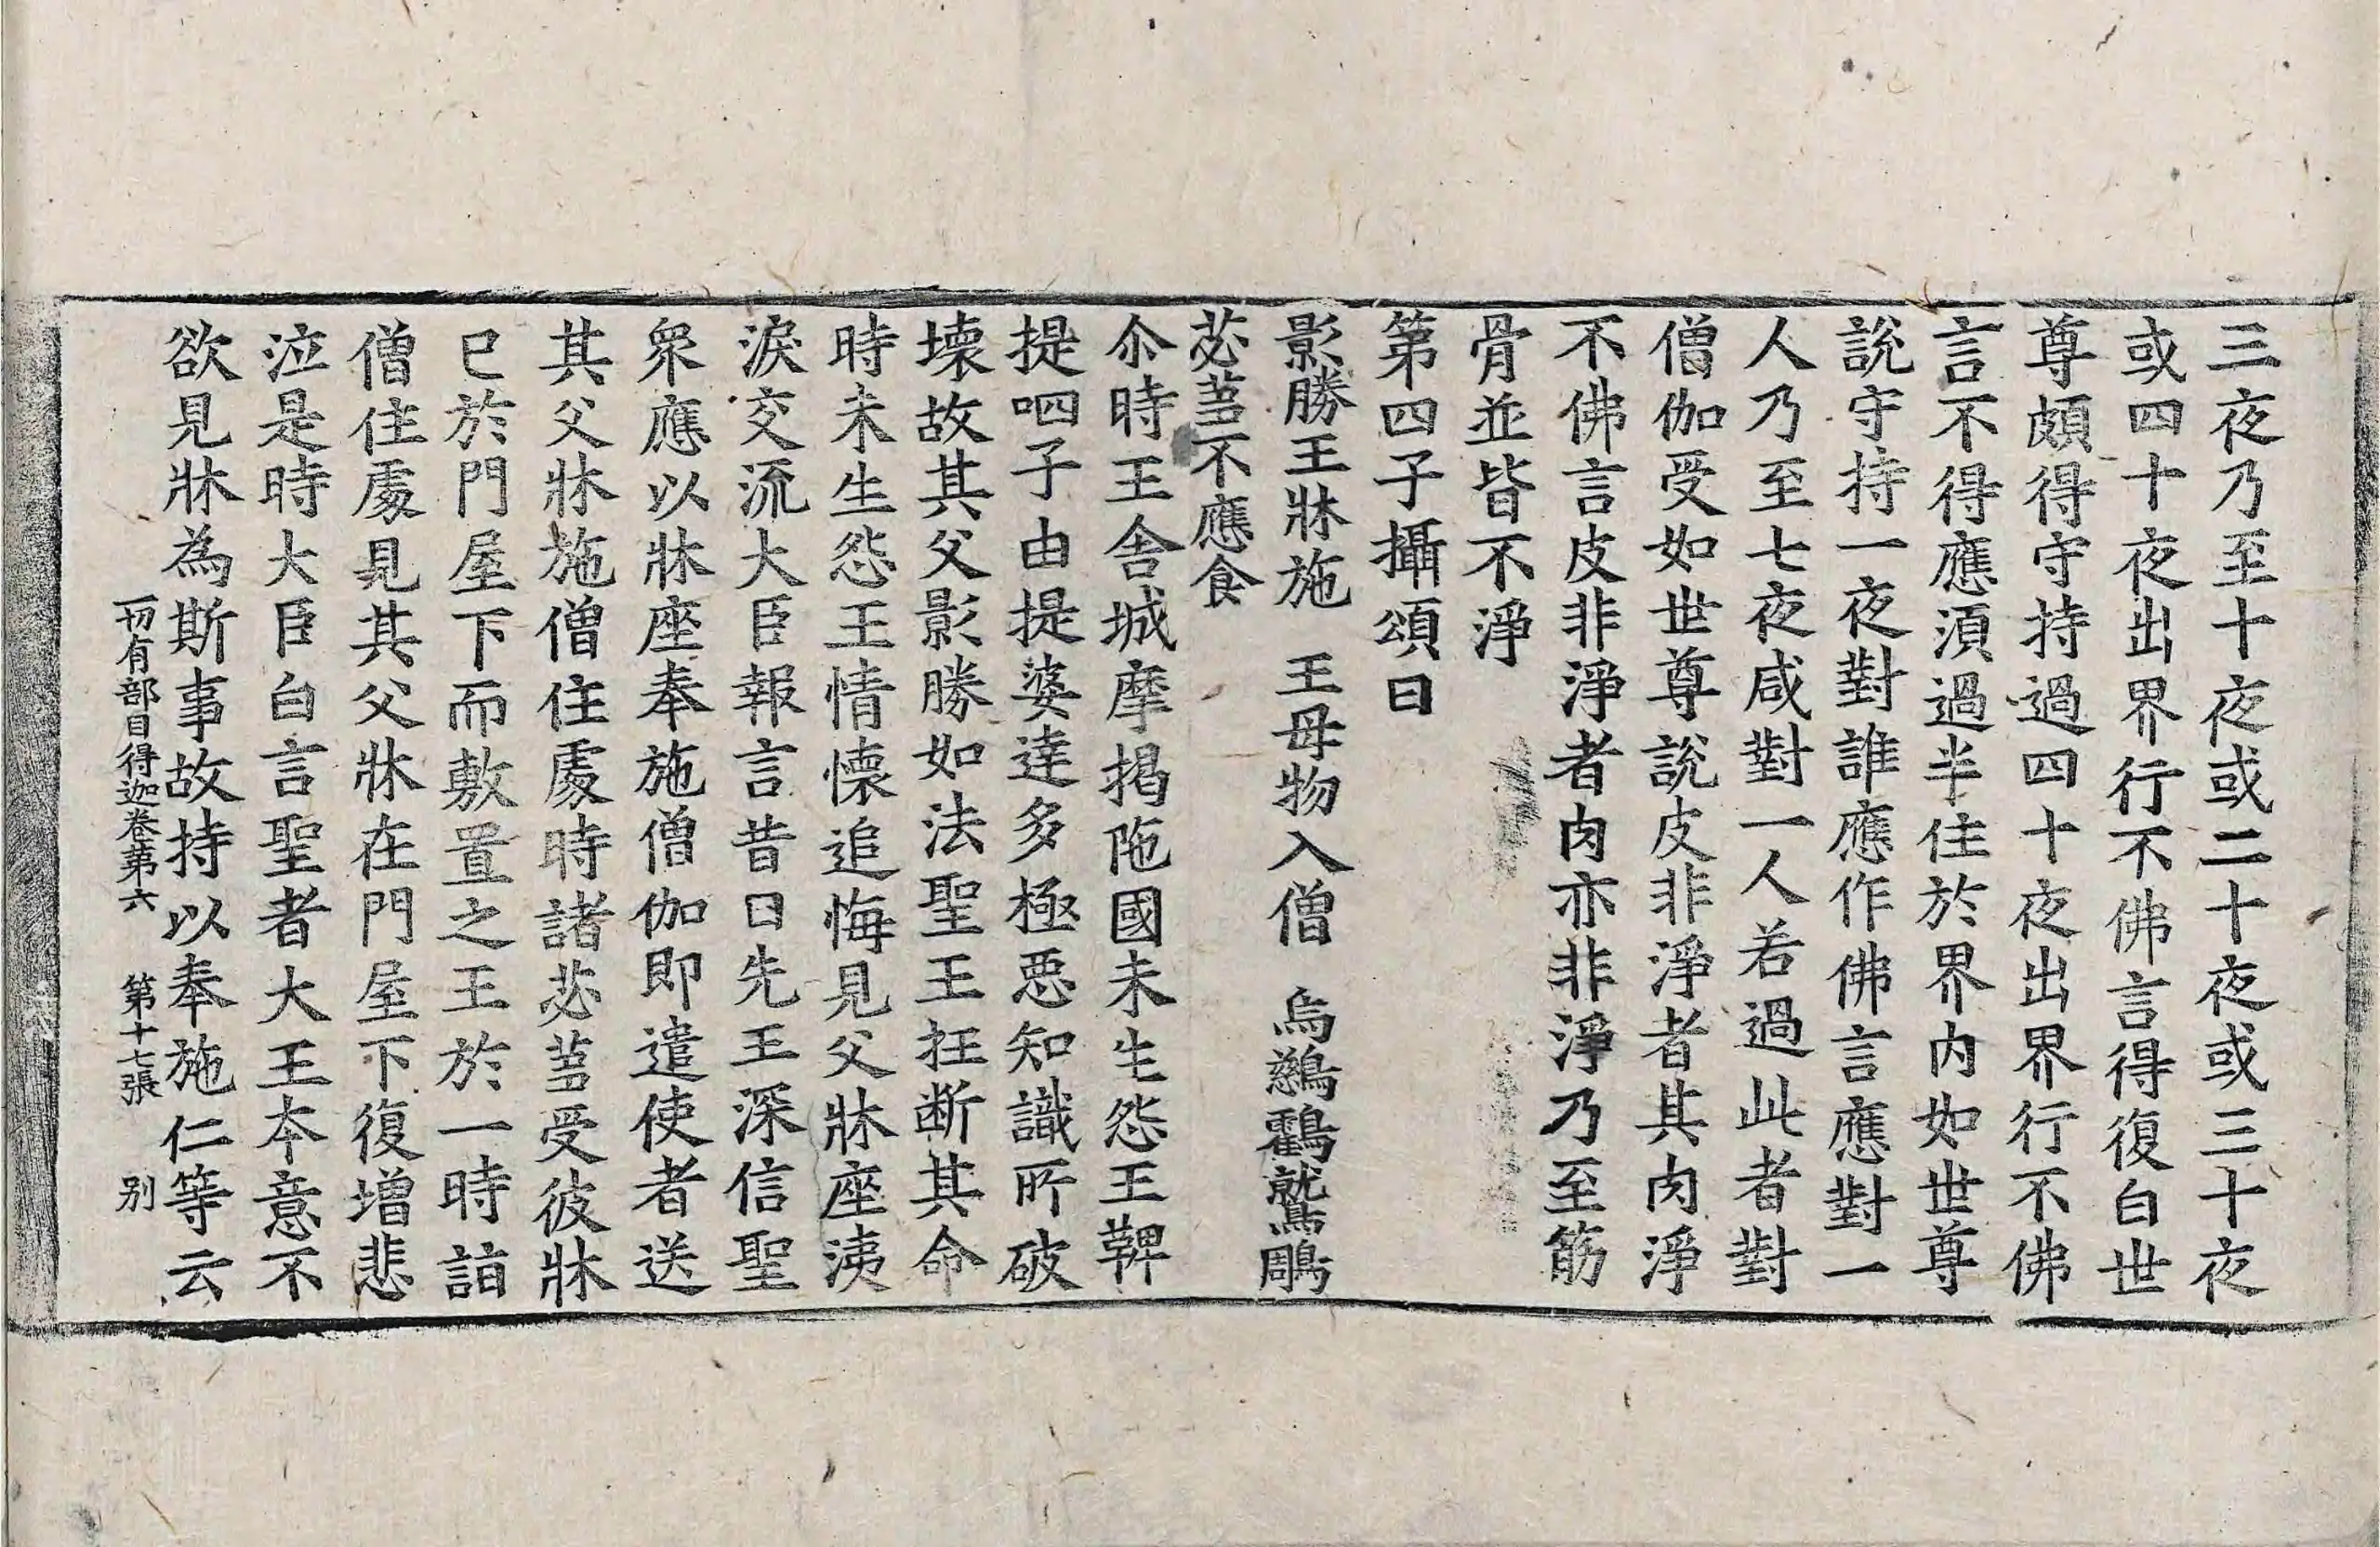 三夜乃至十夜或二十夜或三十夜
或四十夜出界行不佛言得復白世
尊頗得守持過四十夜出界行不佛
言不得應湏過半住於界内如世尊
說守持一夜對誰應作佛言應對一
人乃至七夜咸對一人若過此者對
僧伽受如世尊說皮非淨者其肉淨
不佛言皮非淨者肉亦非淨乃至筋
骨並皆不淨
第四子攝頌曰
影勝王牀施　王母物入僧　烏鷀鸖鷲鵰
苾芻不應食
尒時王舎城摩揭陁國未生怨王鞞
提呬子由提婆達多極惡知識所破
壞故其父影勝如法聖王抂断其命
時未生怨王情懷追悔見父牀座洟
淚交流大臣報言昔日先王深信聖
衆應以牀座奉施僧伽即遣使者送
其父牀施僧住處時諸苾芻受彼牀
已於門屋下而敷置之王於一時詣
僧住處見其父牀在門屋下復增悲
泣是時大臣白言聖者大王本意不
欲見牀為斯事故持以奉施仁等云
一切有部目得迦卷第六　第十七張　別